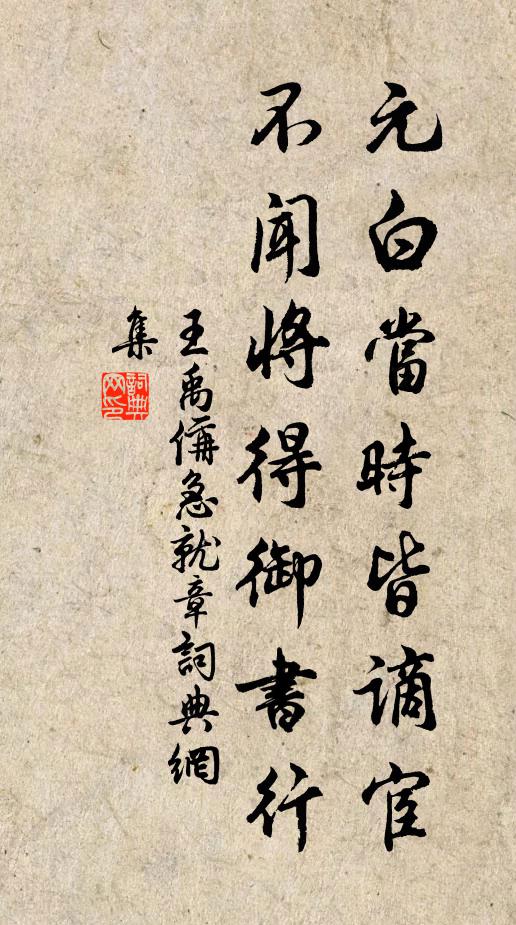 元白當時皆謫宦
不聞將得御書行
王禹偁急就章詞典網
集
詞典網印